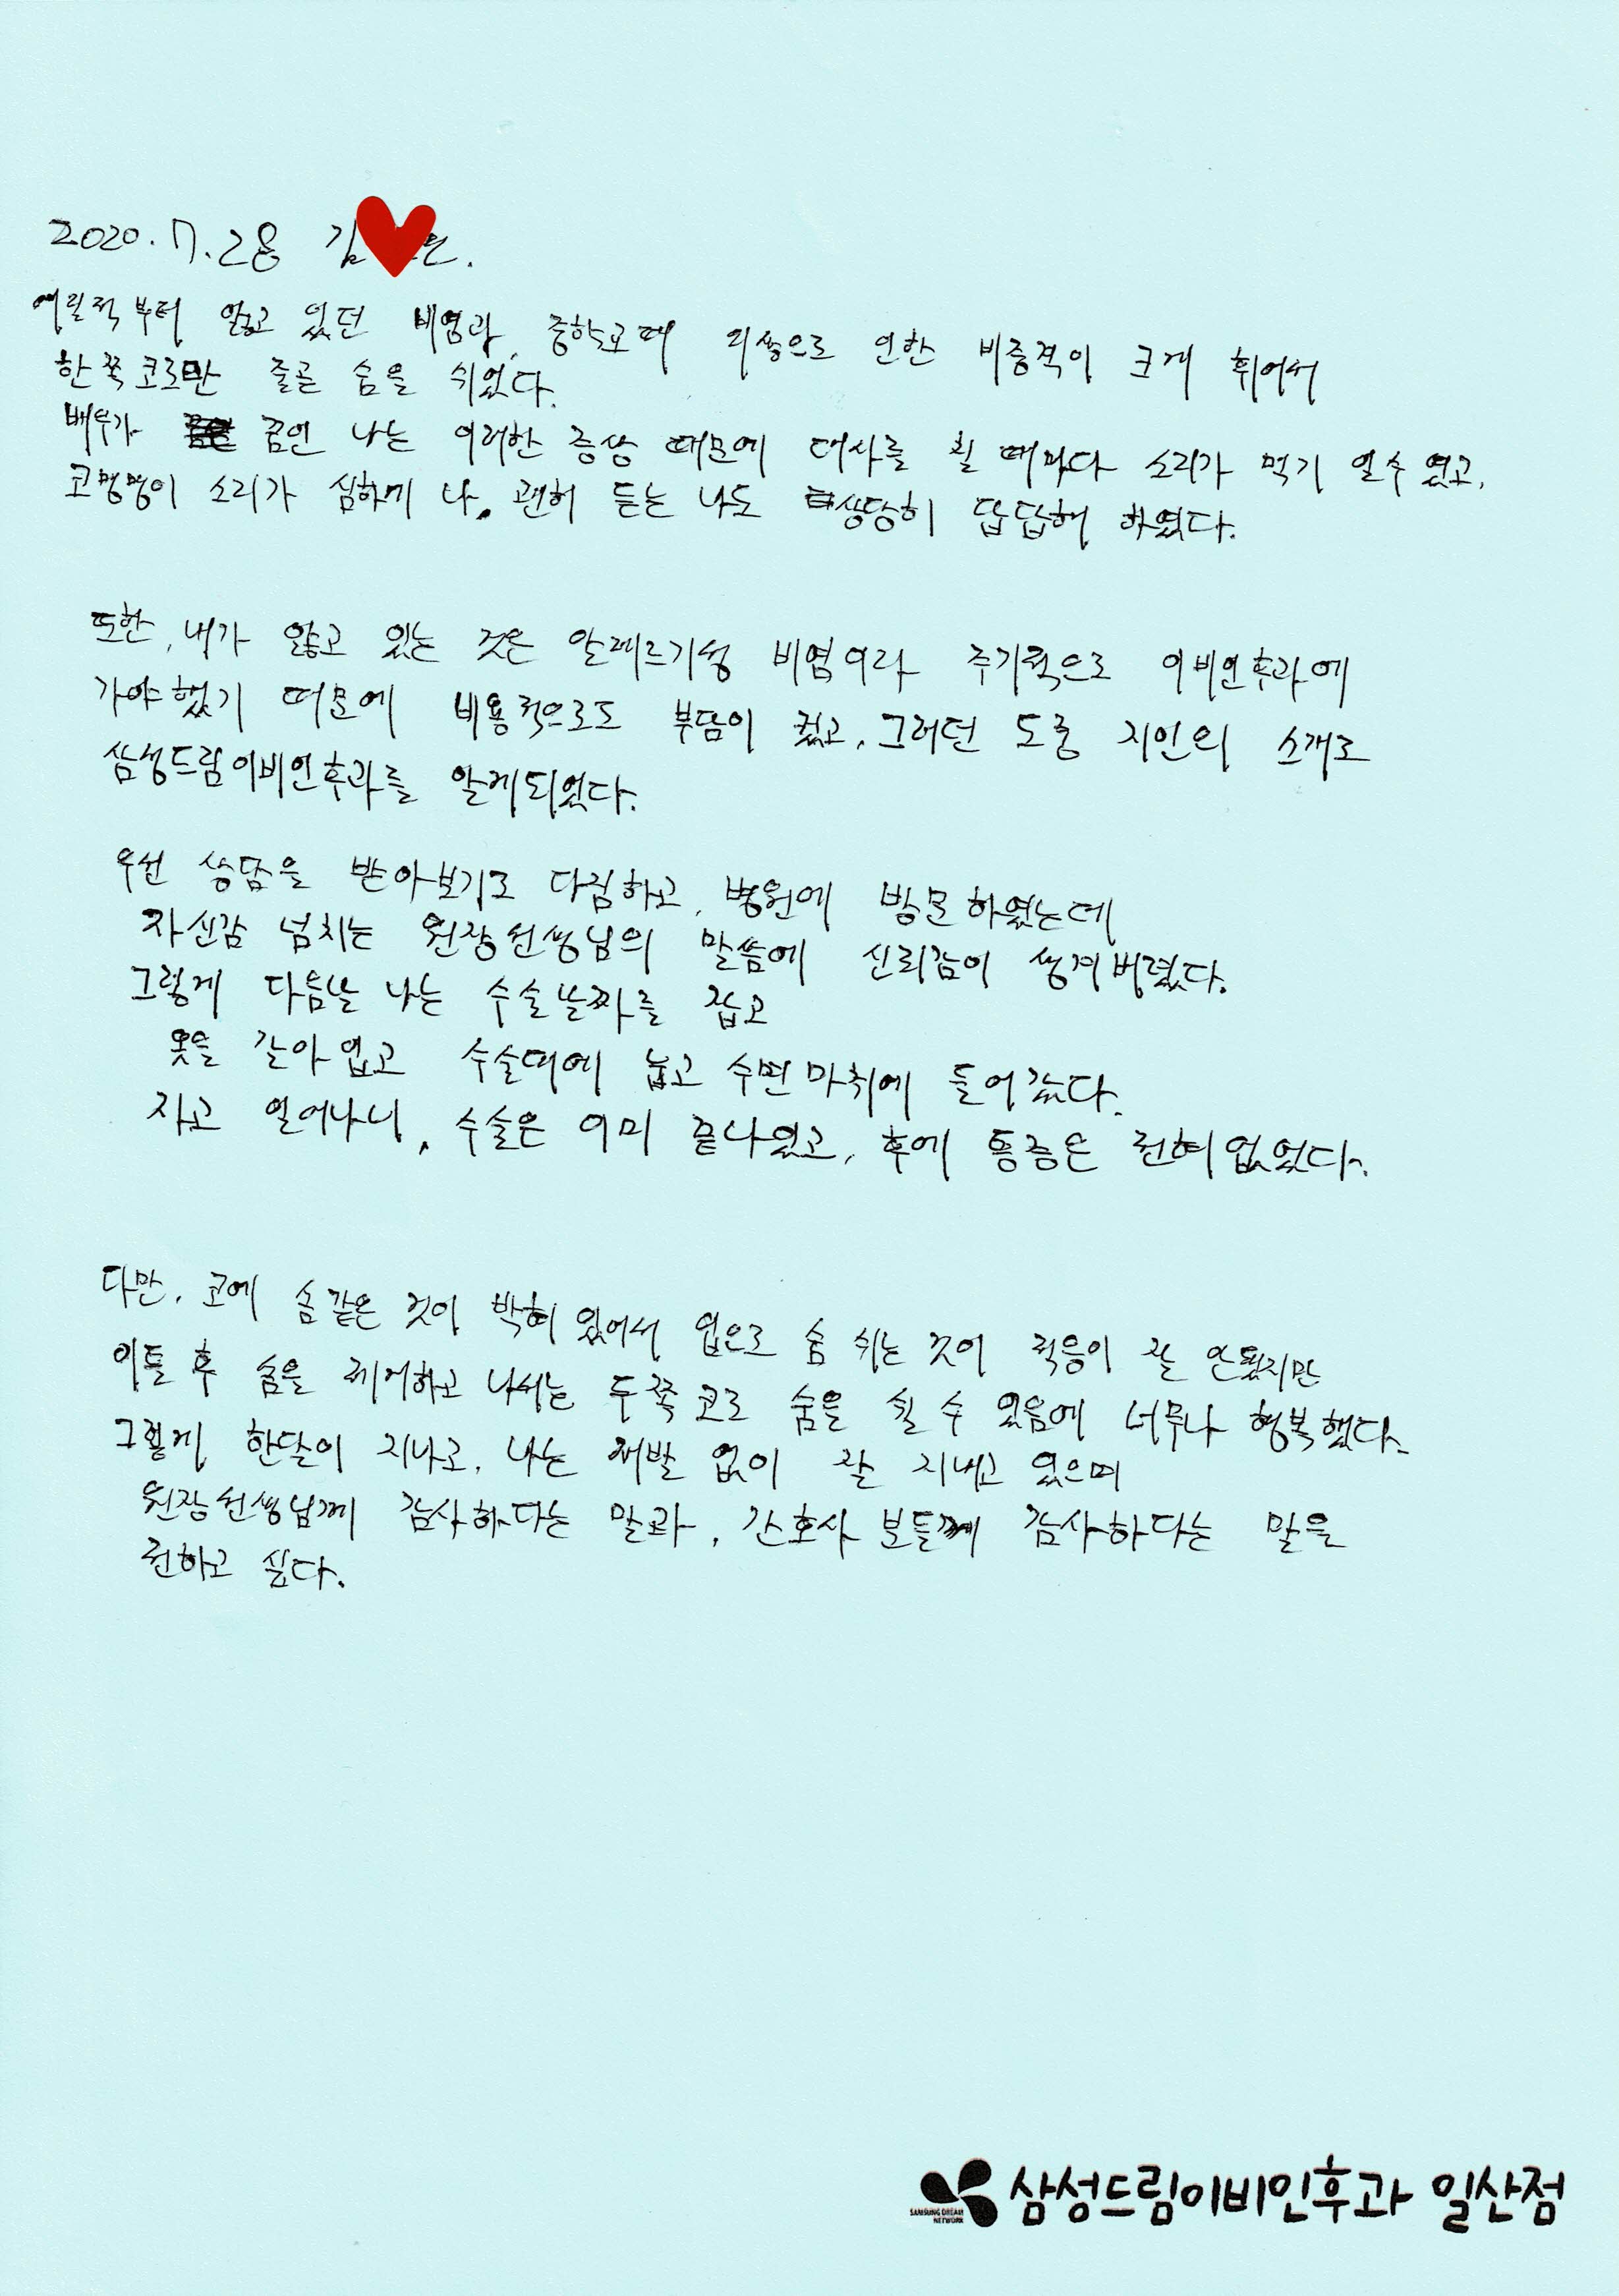 2020. 7. 28 김
어릴적부터 앓고 있던 비염과, 중학교때 외상으로 인한 비중격이 크게 휘어서
한쪽코로만 줄곧 숨을 쉬었다.
배우가 꿈인 나는 이러한 증상 때문에 대사를 칠 때마다 소리가 먹기 일수 였고,
코맹맹이 소리가 심하게 나, 괜히 듣는 나도 상당히 답답해 하였다.
또한, 내가 앓고 있는 것은 알레르기성 비염이라 주기적으로 이비인후과에
가야했기 때문에 비용적으로도 부담이 컸고, 그러던 도중 지인의 소개로
삼성드림이비인후과를 알게되었다.
우선 상담을 받아보기로 다짐하고, 병원에 방문하였는데
자신감 넘치는 원장선생님의 말씀에 신뢰감이 생겨버렸다.
그렇게 다음날 나는 수술날짜를 잡고
옷을 갈아입고 수술대에 눕고 수면마취에 들어갔다.
자고 일어나니, 수술은 이미 끝나있고, 후에 통증은 전혀없었다.
다만, 코에 솜같은 것이 박혀 있어서 입으로 숨 쉬는 것이 적응이 잘 안됐지만
이틀 후 솜을 제거하고 나서는 두쪽코로 숨을 쉴 수 있음에 너무나 행복했다.
그렇게 한달이 지나고, 나는 재발 없이 잘 지내고 있으며
원장선생님께 감사하다는 말과, 간호사 분들께 감사하다는 말을
전하고 싶다.
SAMSUNG DREAM
NETWORK
삼성드림이비인후과 일산점